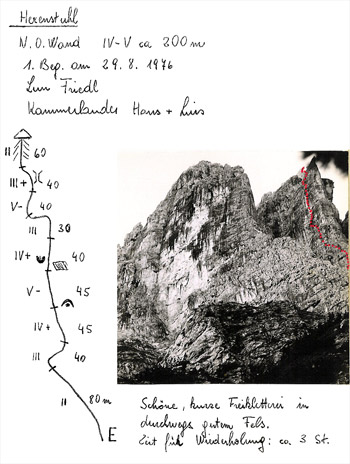 Hexenstuhl
N.O. Wand IV-V ca 200 m
1. Beg. am 29. 8. 1976
Lun Friedl
Kammerlander Hans + Luis
II 60
III+ 40
V- 40
III 30
IV+ 40
V- 45
IV+ 45
III 40
II 80 m
E
Schöne, kurze Freikletterei in
durchwegs gutem Fels.
Zeit für Wiederholung: ca. 3 St.